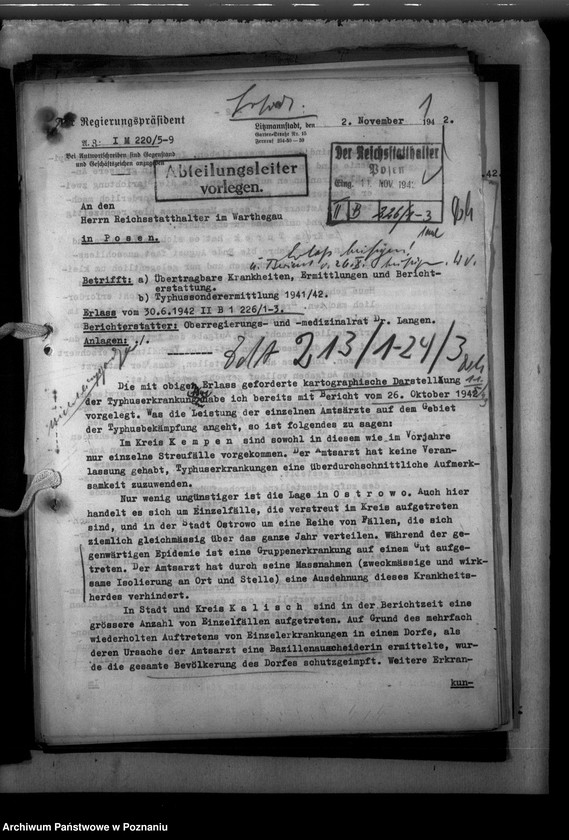 Der Regierungspräsident
Litzmannstadt, den 2. November 1942.
I M 220/5-9
Bei Antwortschreiben sind Gegenstand
und Geschäftszeichen anzugeben
Abteilungsleiter
vorlegen.
Der Reichsstatthalter
Posen
Eing. NOV. 194
II B 226/1-3
42.
An den
Herrn Reichsstatthalter im Warthegau
in Posen.
Betrifft: a) Übertragbare Krankheiten, Ermittlungen und Bericht-
erstattung.
b) Typhussonderermittlung 1941/42.
Erlass vom 30.6.1942 II B 1 226/1-3.
Berichterstatter: Oberregierungs- und -medizinalrat Dr. Langen.
Anlagen: -------
213/1-24/3
Die mit obigem Erlass geforderte kartographische Darstellung
der Typhuserkrankung habe ich bereits mit Bericht vom 26. Oktober 1942
vorgelegt. Was die Leistung der einzelnen Amtsärzte auf dem Gebiet
der Typhusbekämpfung angeht, so ist folgendes zu sagen:
Im Kreis Kempen sind sowohl in diesem wie im Vorjahre
nur einzelne Streufälle vorgekommen. Der Amtsarzt hat keine Veran-
lassung gehabt, Typhuserkrankungen eine überdurchschnittliche Aufmerk-
samkeit zuzuwenden.
Nur wenig ungünstiger ist die Lage in Ostrowo. Auch hier
handelt es sich um Einzelfälle, die verstreut im Kreis aufgetreten
sind, und in der Stadt Ostrowo um eine Reihe von Fällen, die sich
ziemlich gleichmässig über das ganze Jahr verteilen. Während der ge-
genwärtigen Epidemie ist eine Gruppenerkrankung auf einem Gut aufge-
treten. Der Amtsarzt hat durch seine Massnahmen (zweckmässige und wirk-
same Isolierung an Ort und Stelle) eine Ausdehnung dieses Krankheits-
herdes verhindert.
In Stadt und Kreis Kalisch sind in der Berichtzeit eine
grössere Anzahl von Einzelfällen aufgetreten. Auf Grund des mehrfach
wiederholten Auftretens von Einzelerkrankungen in einem Dorfe, als
deren Ursache der Amtsarzt eine Bazillenauscheiderin ermittelte, wur-
de die gesamte Bevölkerung des Dorfes schutzgeimpft. Weitere Erkran-
kun-
Archiwum Państwowe w Poznaniu